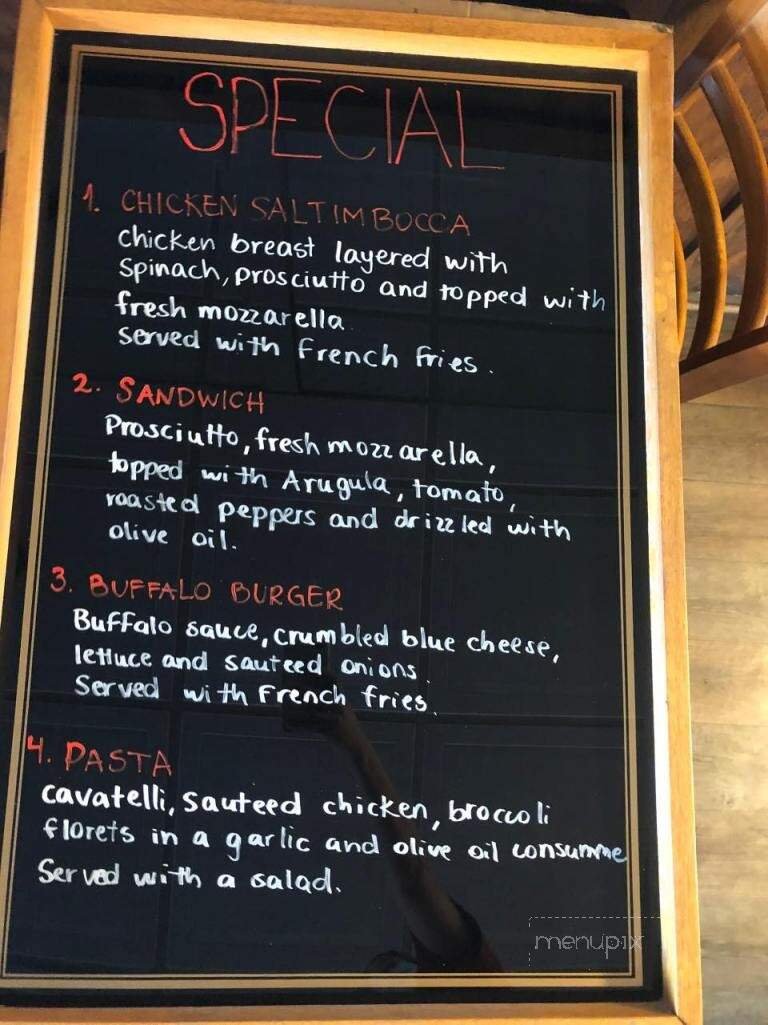 SPECIAL
1. CHICKEN SALTIMBOCCA
chicken breast layered with
Spinach, prosciutto and topped with
fresh mozzarella.
Served with French fries.
2. SANDWICH
Prosciutto, fresh mozzarella,
topped with Arugula, tomato,
roasted peppers and drizzled with
olive oil.
3. BUFFALO BURGER
Buffalo sauce, crumbled blue cheese,
lettuce and sauteed onions.
Served with French fries.
4. PASTA
cavatelli, sauteed chicken, broccoli
florets in a garlic and olive oil consumme
Served with a salad.
menupix